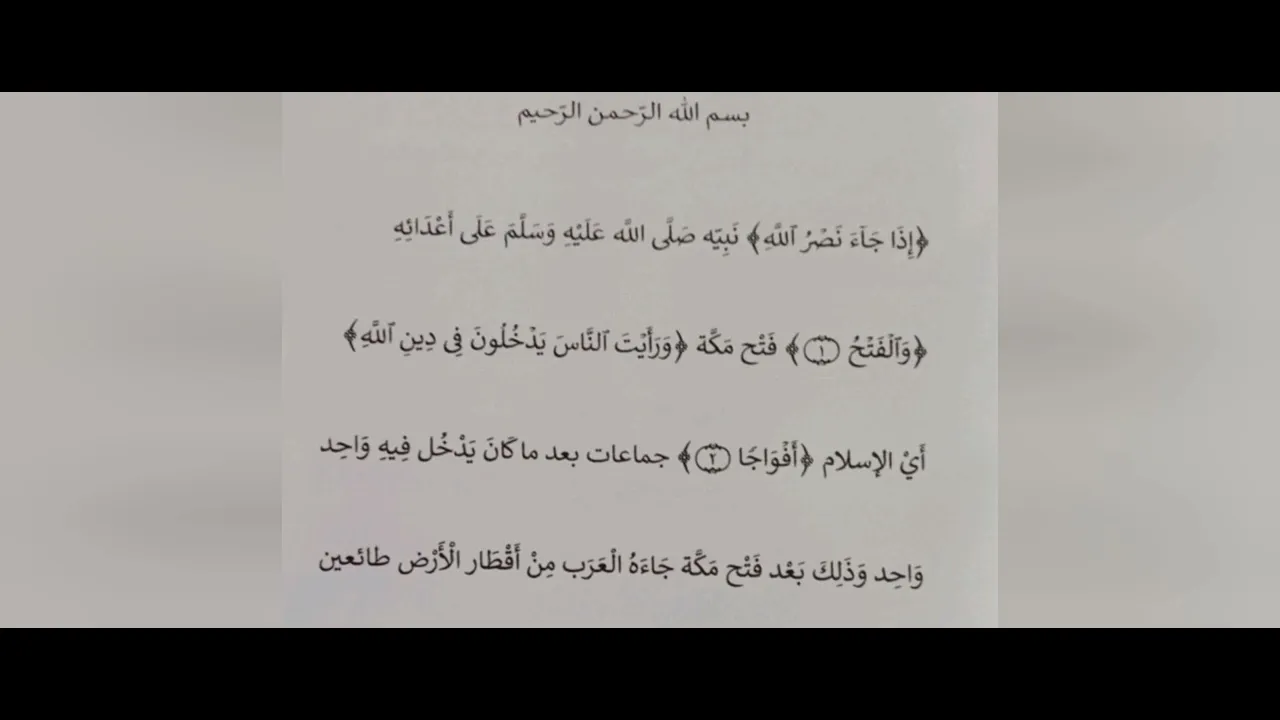 بسم الله الرّحمن الرّحيم
﴿إِذَا جَآءَ نَصۡرُ ٱللَّهِ﴾ نَبِيّه صَلَّى اللَّه عَلَيْهِ وَسَلَّمَ عَلَى أَعْدَائِهِ
﴿وَٱلۡفَتۡحُ ۝١﴾ فَتْح مَكَّة ﴿وَرَأَيۡتَ ٱلنَّاسَ يَدۡخُلُونَ فِى دِينِ ٱللَّهِ﴾
أَيْ الإسلام ﴿أَفۡوَاجٗا ۝٢﴾ جماعات بعد ما كَانَ يَدْخُل فِيهِ وَاحِد
وَاحِد وَذَلِكَ بَعْد فَتْح مَكَّة جَاءَهُ الْعَرَب مِنْ أَقْطَار الْأَرْض طائعين